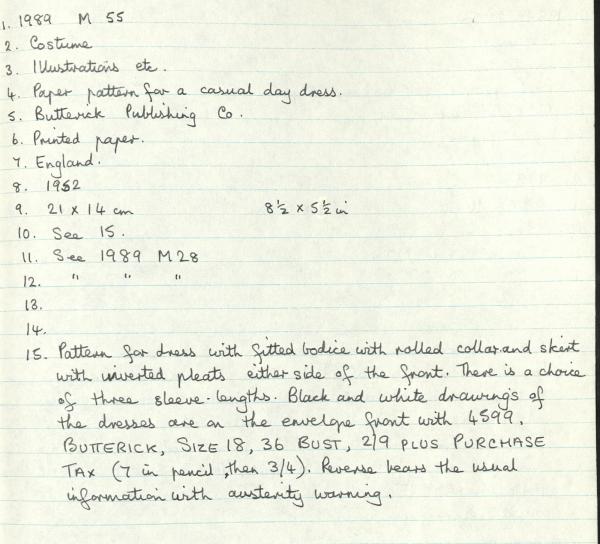 1. 1989 M 55
2. Costume
3. Illustrations etc.
4. Paper pattern for a casual day dress.
5. Butterick Publishing Co.
6. Printed paper.
7. England.
8. 1952
9. 21 x 14 cm 8½ x 5½ in
10. See 15.
11. See 1989 M28
12. " " "
13.
14.
15. Pattern for dress with fitted bodice with rolled collar and skirt
with inverted pleats either side of the front. There is a choice
of three sleeve-lengths. Black and white drawings of
the dresses are on the envelope front with 4599,
BUTTERICK, SIZE 18, 36 BUST, 2/9 PLUS PURCHASE
TAX (7 in pencil, then 3/4). Reverse bears the usual
information with austerity warning.